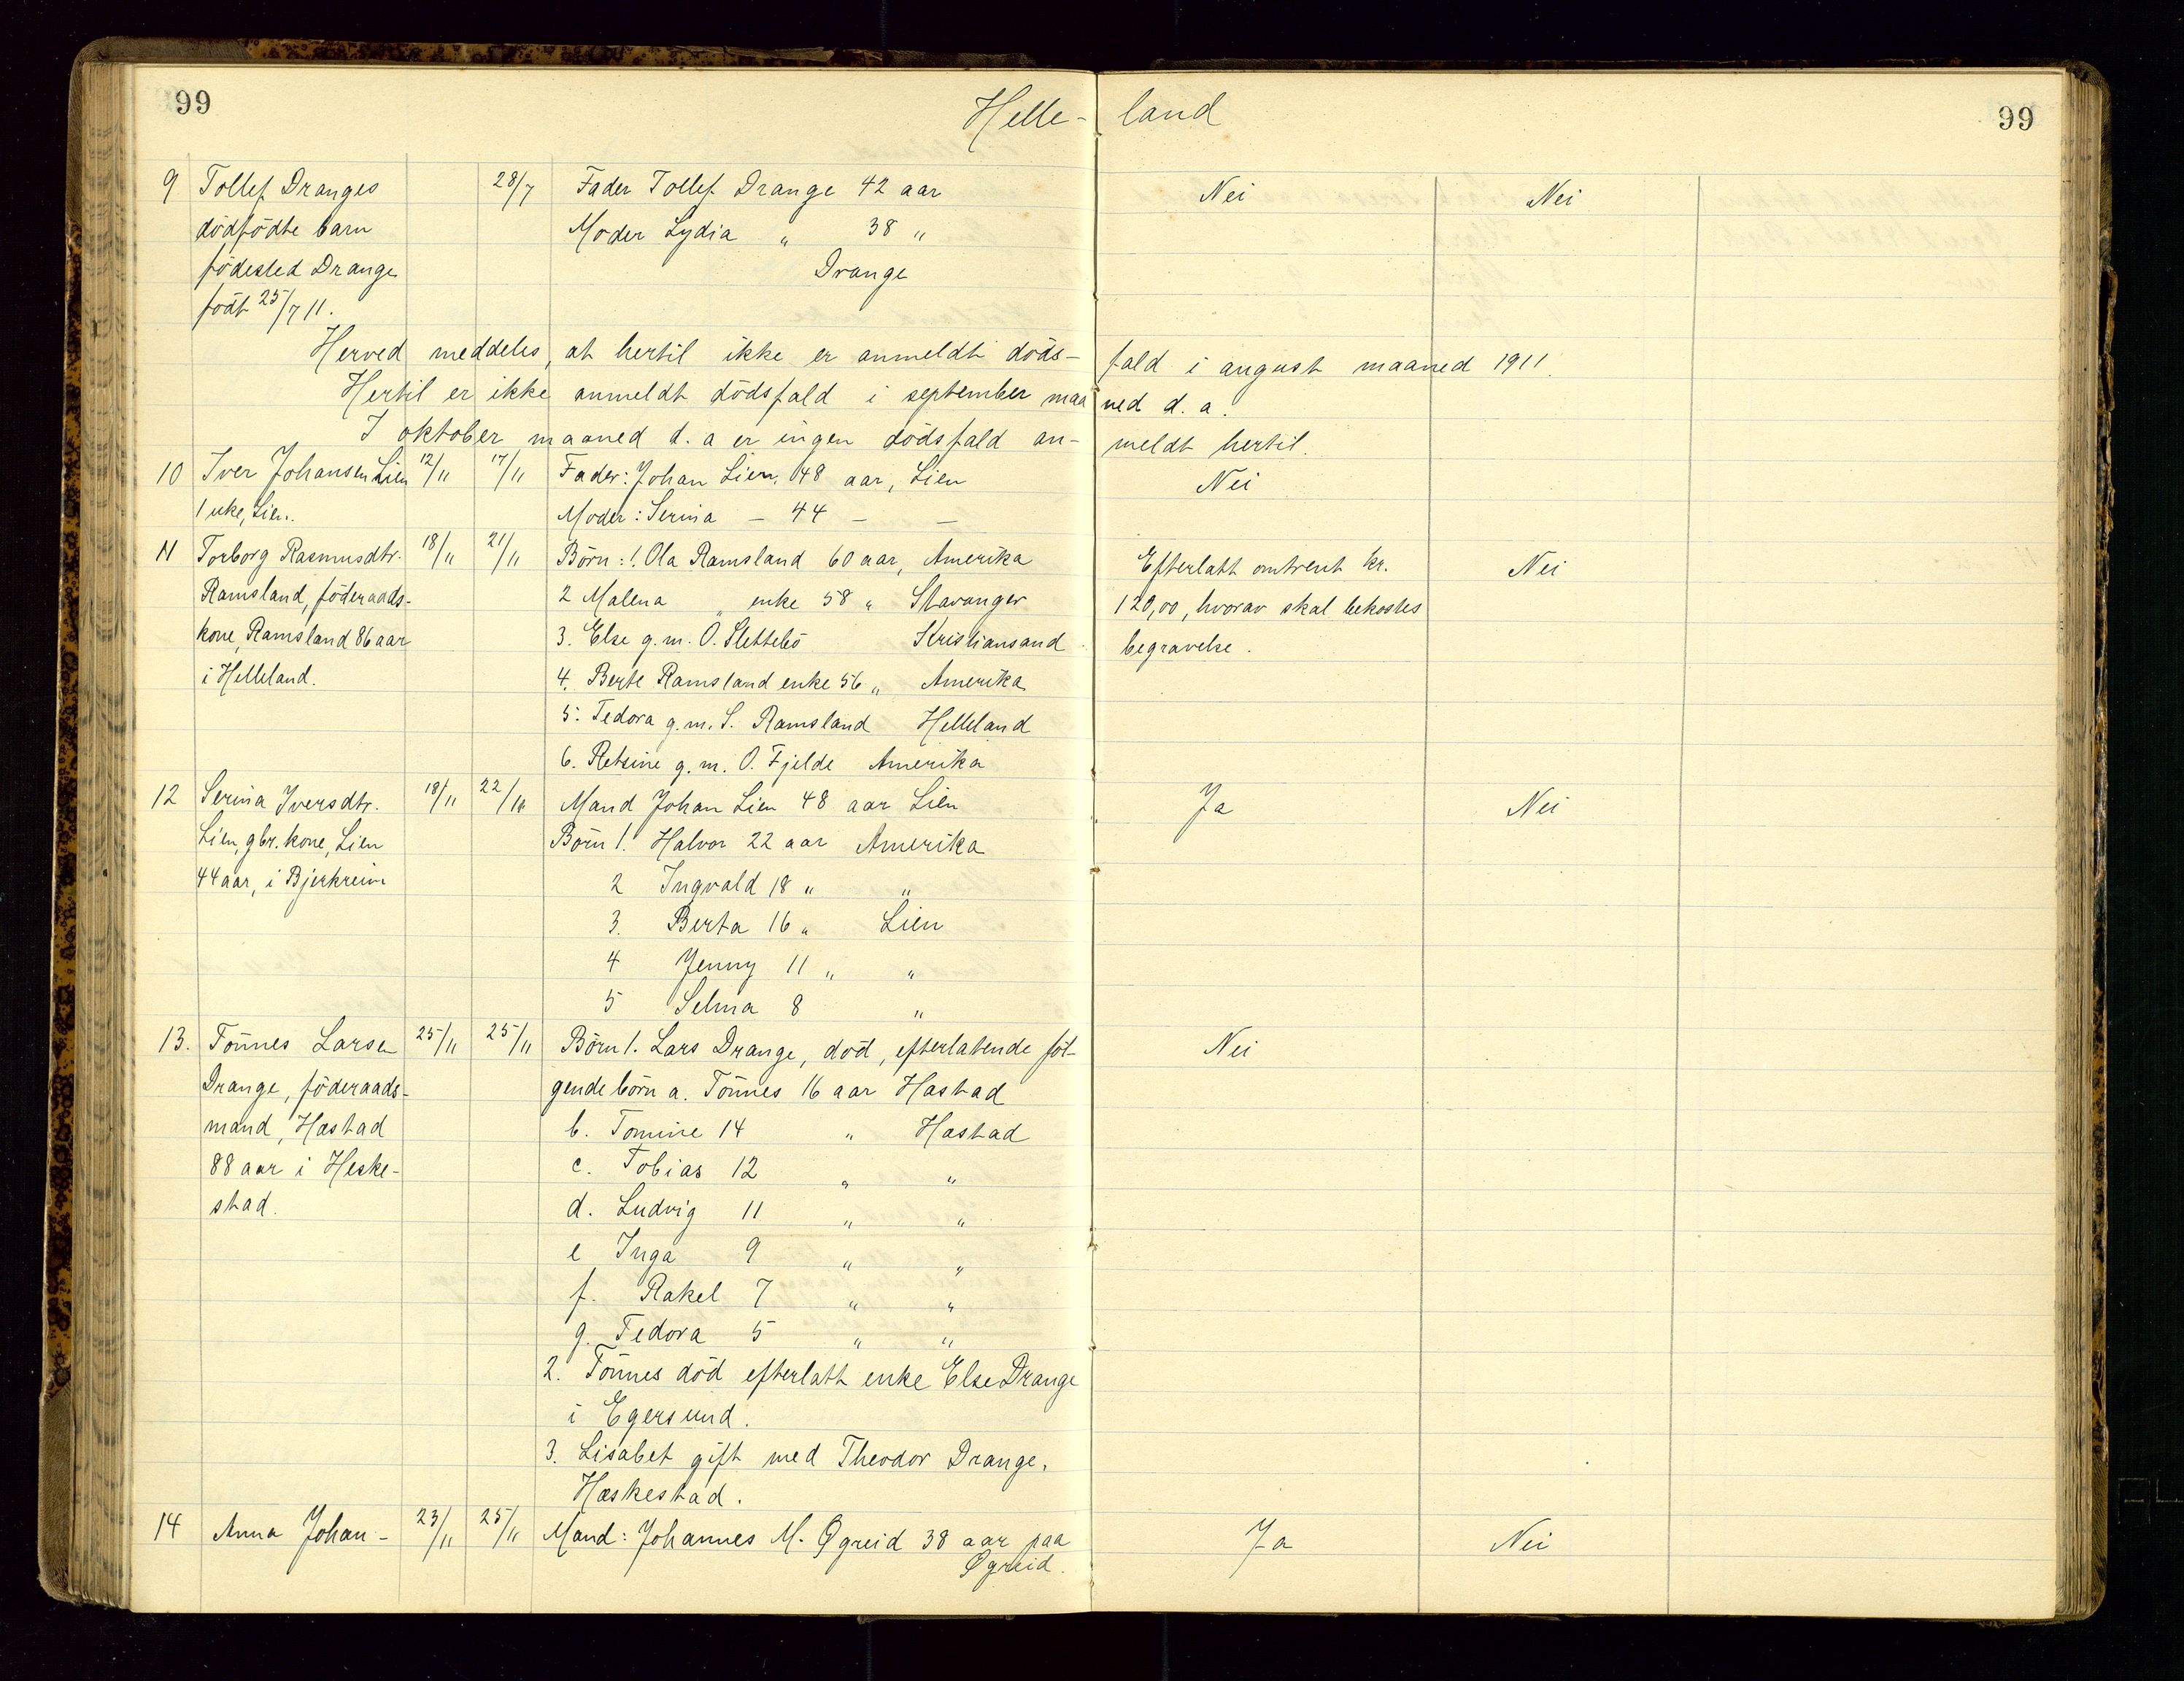 99
Helle- land
99
9 Tollef Dranges 28/7 Fader Tollef Drange 42 aar Nei Nei
dödfödte barn Moder Lydia " 38 "
födested Drange Drange
född 25/7 11.
Herved meddeles, at hertil ikke er anmeldt döds- fald i august maaned 1911.
Hertil er ikke anmeldt dödsfald i september maaned d. a.
I oktober maaned d. a er ingen dödsfald an- meldt hertil.
10 Iver Johansen Lien 12/11 17/11 Fader: Johan Lien, 48 aar, Lien Nei
1 uke, Lien. Moder: Serina — 44 — —
11 Torborg Rasmusdtr. 18/11 21/11 Börn: 1. Ola Ramsland 60 aar, Amerika Efterlatt omtrent kr. Nei
Ramsland, föderaads- 2 Malena " enke 58 " Stavanger 120,00, hvorav skal bekostes
kone, Ramsland 86 aar 3. Else g. m. O. Slettebö Kristiansand begravelse.
i Helleland. 4. Berte Ramsland enke 56 " Amerika
5. Tedora g. m. S. Ramsland Helleland
6. Retsine g. m. O. Fjelde Amerika
12 Serina Iversdtr. 18/11 22/11 Mand Johan Lien 48 aar Lien Ja Nei
Lien, gbr. kone, Lien Börn 1. Halvor 22 aar Amerika
44 aar, i Bjerkreim 2 Ingvald 18 " "
3. Berta 16 " Lien
4 Jenny 11 " "
5 Selma 8 "
13. Tönnes Larsen 25/11 25/11 Börn 1. Lars Drange, död, efterlatende föl- Nei
Drange, föderaads- gende börn a. Tönnes 16 aar Hastad
mand, Hastad b. Tomine 14 " Hastad
88 aar i Heske- c. Tobias 12 " "
stad. d. Ludvig 11 " "
e Inga 9 " "
f. Rakel 7 " "
g. Tedora 5 " "
2. Tönnes död efterlatt enke Else Drange
i Egersund.
3. Lisabet gift med Theodor Drange,
Hæskestad.
14 Anna Johan- 23/11 25/11 Mand: Johannes M. Øgreid 38 aar paa Ja Nei
Øgreid.